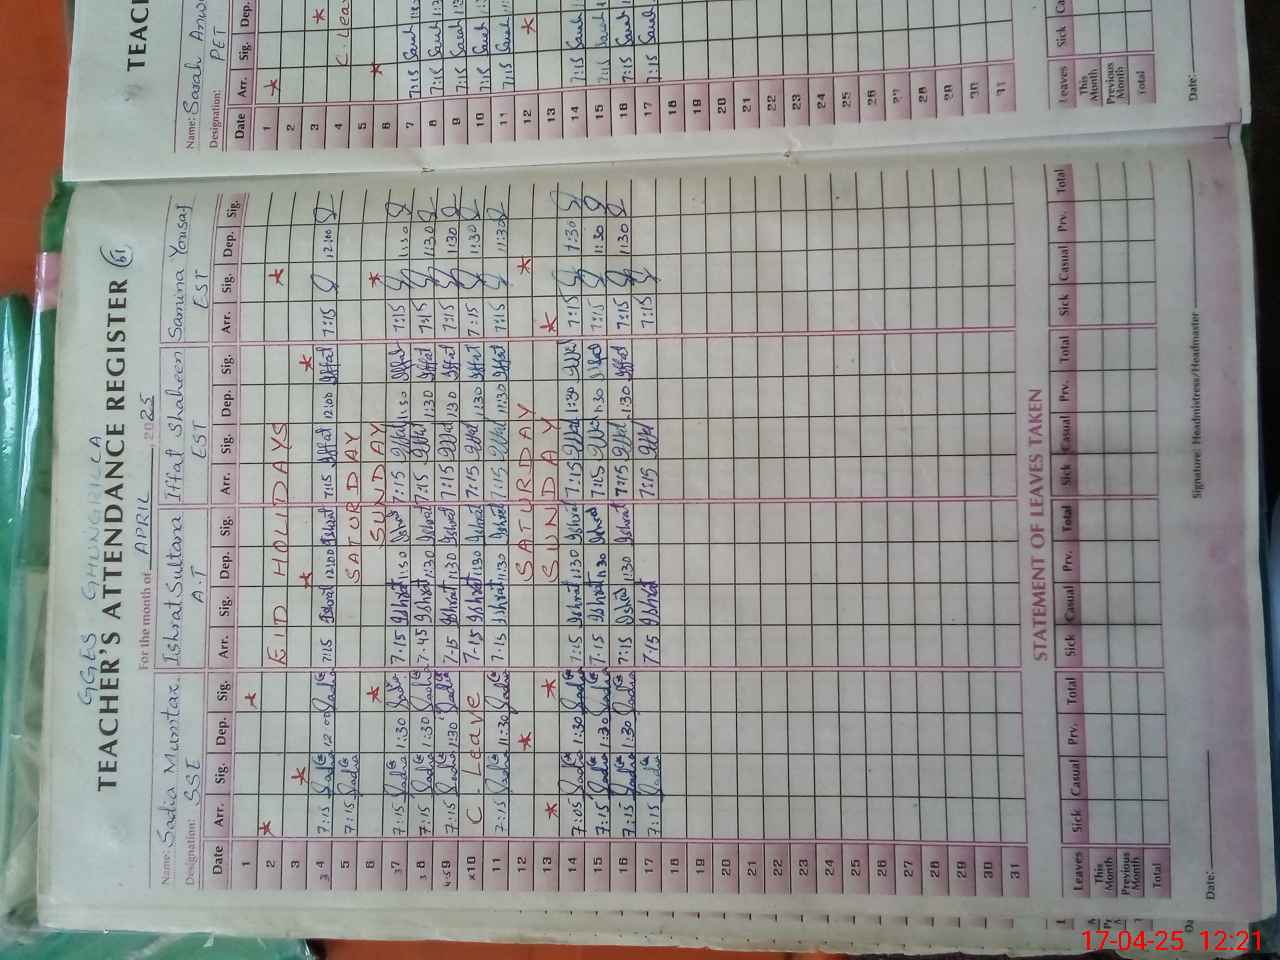 GGES GHUNGRILLA
TEACHER'S ATTENDANCE REGISTER 61
For the month of APRIL, 2025
Name: Sadia Mumtaz Ishrat Sultana Iffat Shaheen Samina Yousaf
Designation: SSE A.T EST EST
Date Arr. Sig. Dep. Sig. Arr. Sig. Dep. Sig. Arr. Sig. Dep. Sig. Arr. Sig. Dep. Sig.
1
2 EID HOLIDAYS
3
4 7:15 Sadia 12:00 Sadia 7:15 Ishrat 12:00 Ishrat 7:15 Iffat 12:00 Iffat 7:15 12:00
5 7:15 Sadia SATURDAY
6 SUNDAY
7 7:15 Sadia 1:30 Sadia 7:15 Ishrat 1:30 Ishrat 7:15 Iffat 1:30 Iffat 7:15 1:30
8 7:15 Sadia 1:30 Sadia 7:45 Ishrat 1:30 Ishrat 7:15 Iffat 1:30 Iffat 7:15 1:30
9 7:15 Sadia 1:30 Sadia 7:15 Ishrat 1:30 Ishrat 7:15 Iffat 1:30 Iffat 7:15 1:30
10 C. Leave 7:15 Ishrat 1:30 Ishrat 7:15 Iffat 1:30 Iffat 7:15 1:30
11 7:15 Sadia 11:30 Sadia 7:15 Ishrat 11:30 Ishrat 7:15 Iffat 11:30 Iffat 7:15 11:30
12 SATURDAY
13 SUNDAY
14 7:05 Sadia 1:30 Sadia 7:15 Ishrat 1:30 Ishrat 7:15 Iffat 1:30 Iffat 7:15 1:30
15 7:15 Sadia 1:30 Sadia 7:15 Ishrat 1:30 Ishrat 7:15 Iffat 1:30 Iffat 7:15 1:30
16 7:15 Sadia 1:30 Sadia 7:15 Ishrat 1:30 7:15 Iffat 1:30 Iffat 7:15 1:30
17 7:15 Sadia 7:15 Ishrat 7:15 Iffat 7:15
18
19
20
21
22
23
24
25
26
27
28
29
30
31
STATEMENT OF LEAVES TAKEN
Leaves Sick Casual Prv. Total Sick Casual Prv. Total Sick Casual Prv. Total Sick Casual Prv. Total
This Month
Previous Month
Total
Date: Signature: Headmistress/Headmaster
TEAC
Name: Sarah Anw
Designation: PET
Date Arr. Sig. Dep.
1
2
3
4 C. Lea
5
6
7 7:15 Sarah
8 7:15 Sarah
9 7:15 Sarah
10 7:15 Sarah
11 7:15 Sarah
12
13
14 7:15 Sarah
15 7:15 Sarah
16 7:15 Sarah
17 7:15 Sarah
18
19
20
21
22
23
24
25
26
27
28
29
30
31
Leaves Sick Ca
This Month
Previous Month
Total
Date:
17-04-25 12:21